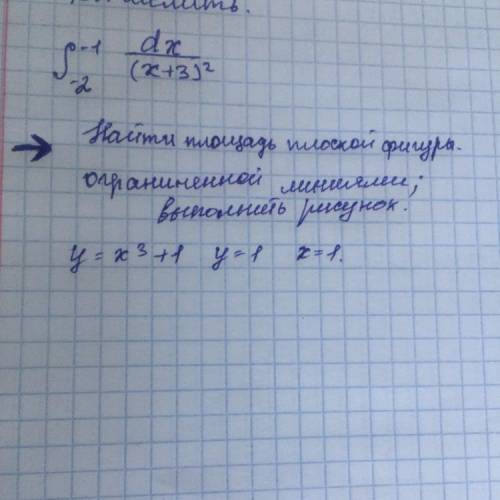 ∫₋₂⁻¹ dx/(x+3)²
Найти площадь плоской фигуры.
ограниченной линиями;
выполнить рисунок.
y = x³+1 y=1 x=1.